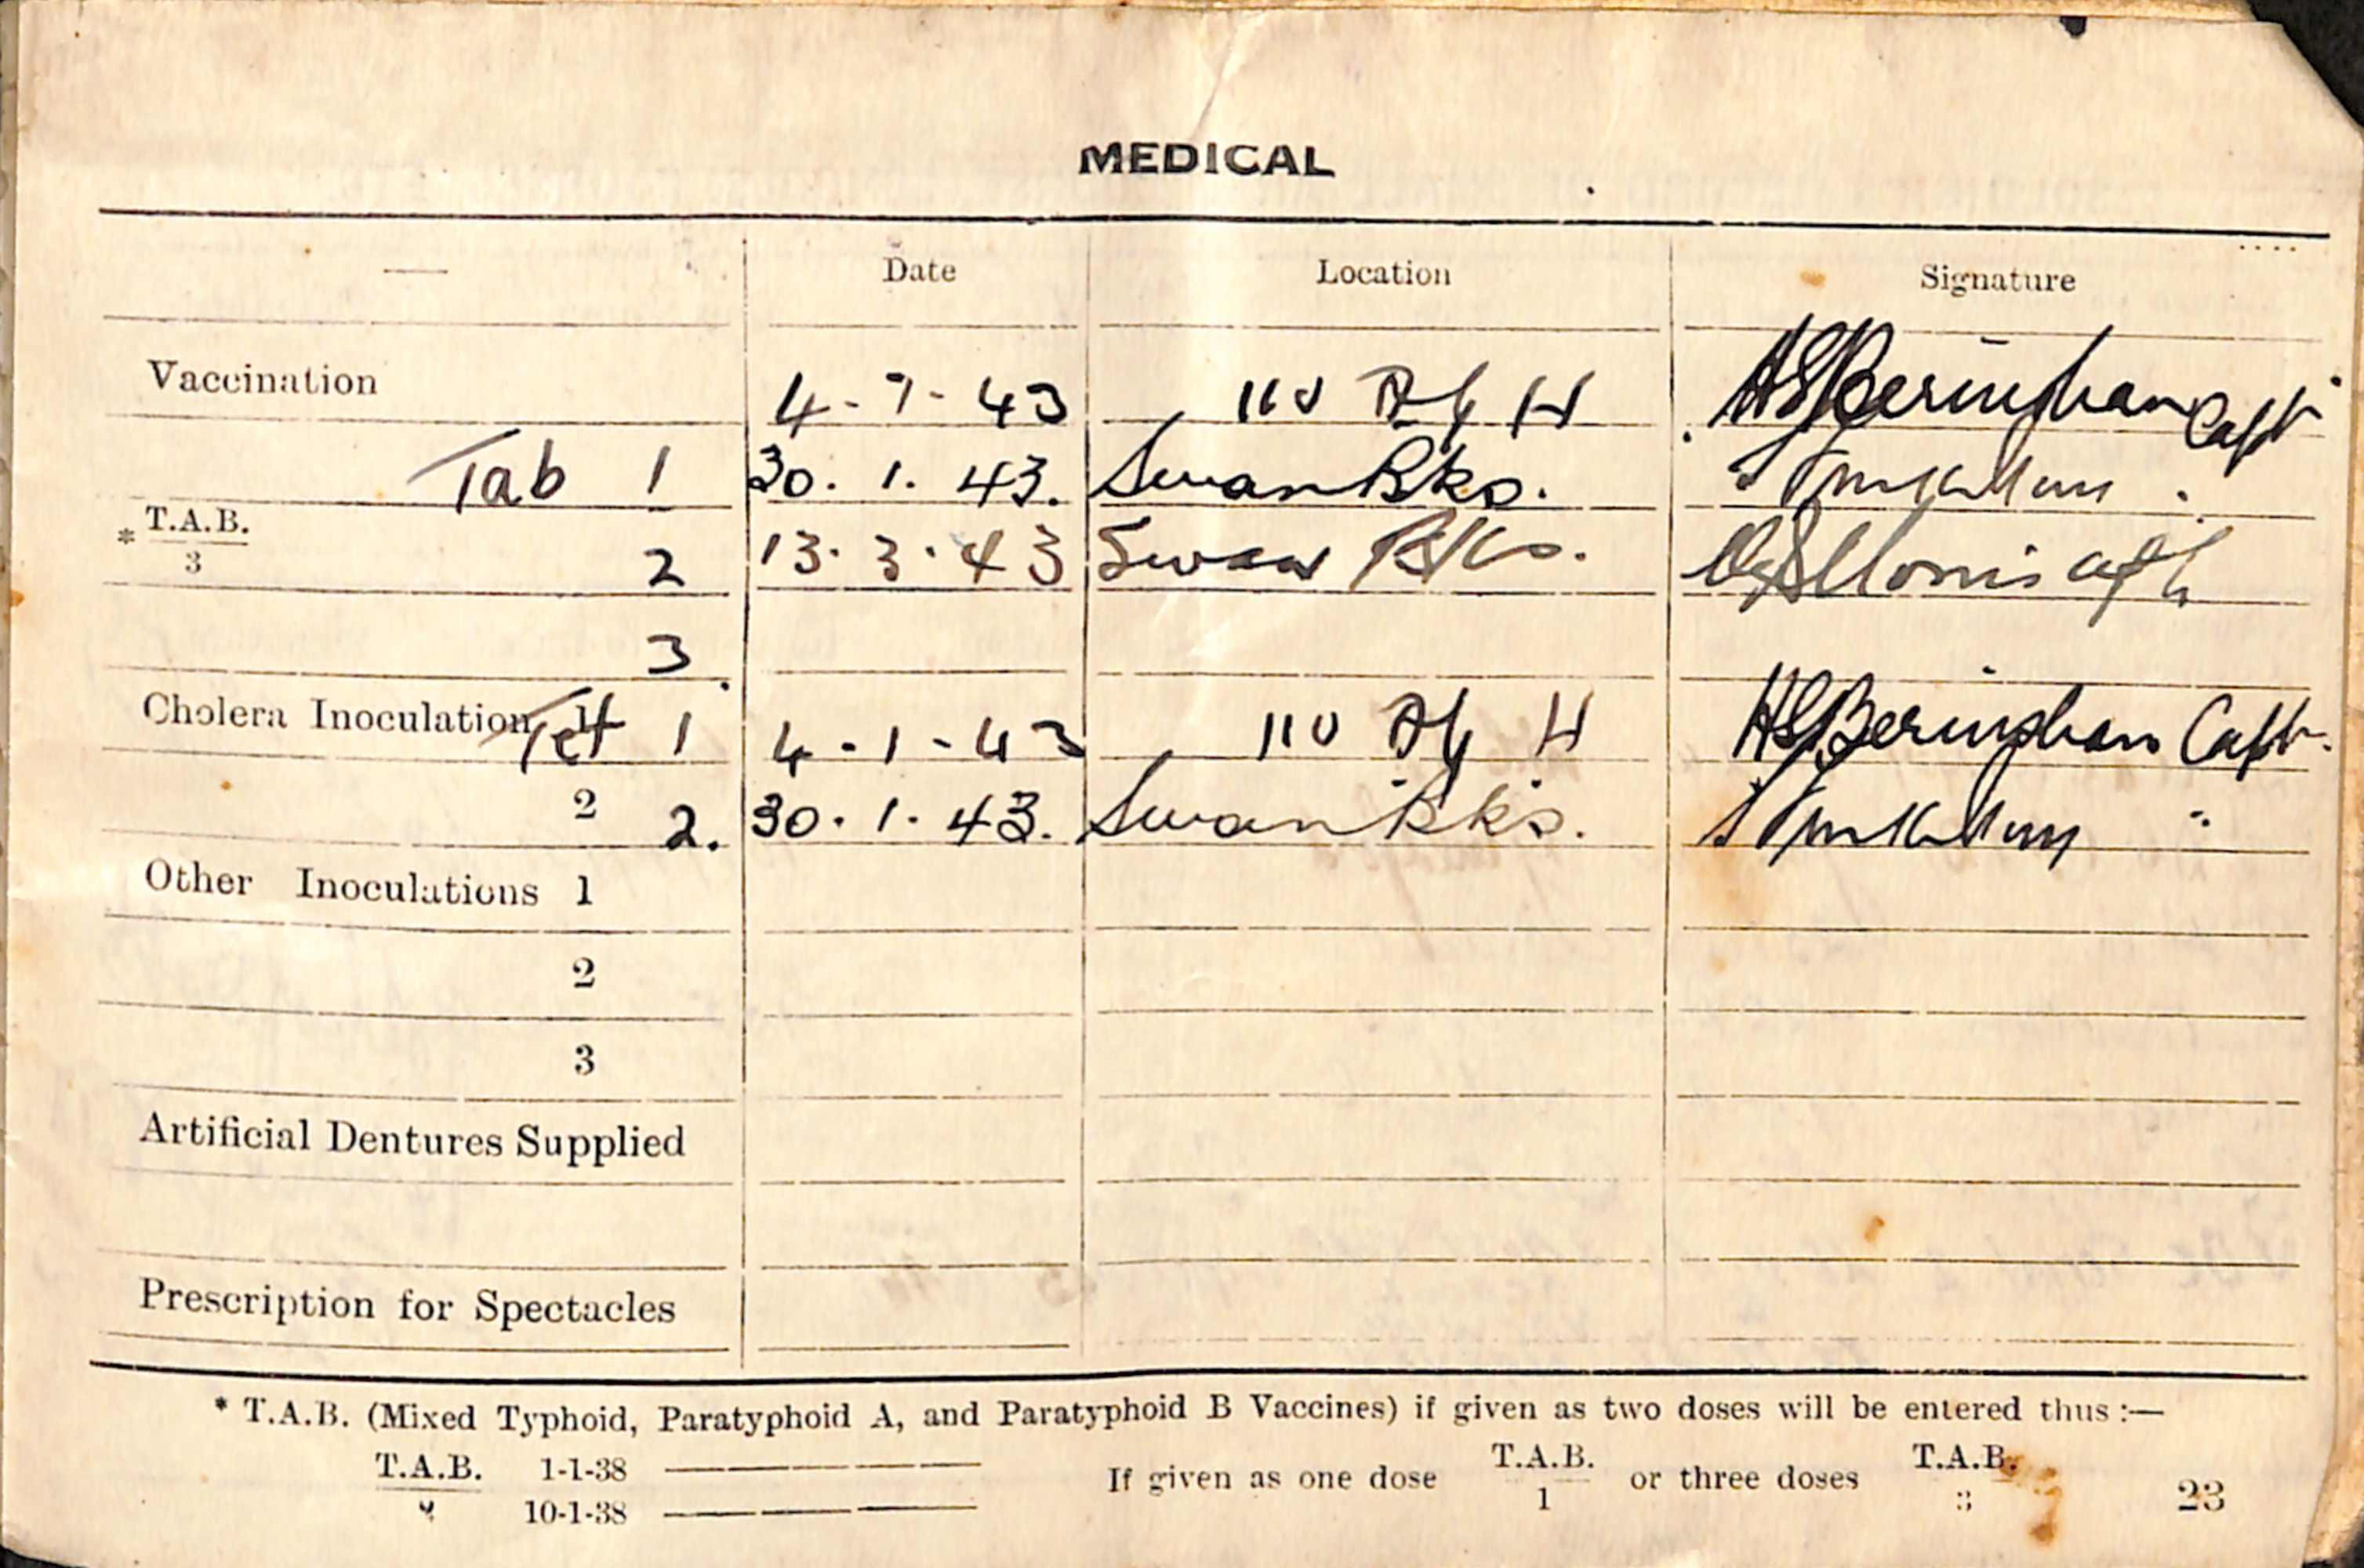 MEDICAL
— Date Location Signature
Vaccination 4-7-43 110 H Capt
Tab 1 30. 1. 43. Swan Bks.
* T.A.B. 2 13. 3. 43 Swan Bks. Capt
3
3
Cholera Inoculation 1 Tet 1 4-1-43 110 H Capt.
2 2. 30. 1. 43. Swan Bks. "
Other Inoculations 1
2
3
Artificial Dentures Supplied
Prescription for Spectacles
* T.A.B. (Mixed Typhoid, Paratyphoid A, and Paratyphoid B Vaccines) if given as two doses will be entered thus :—
T.A.B. 1-1-38 If given as one dose T.A.B. or three doses T.A.B.
10-1-38 1 3 23